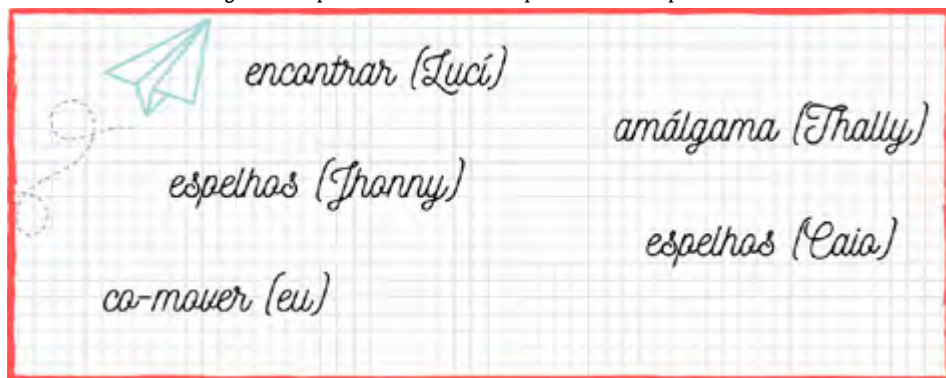 encontrar (Lucí)
amálgama (Thally)
espelhos (Jhonny)
espelhos (Caio)
co-mover (eu)